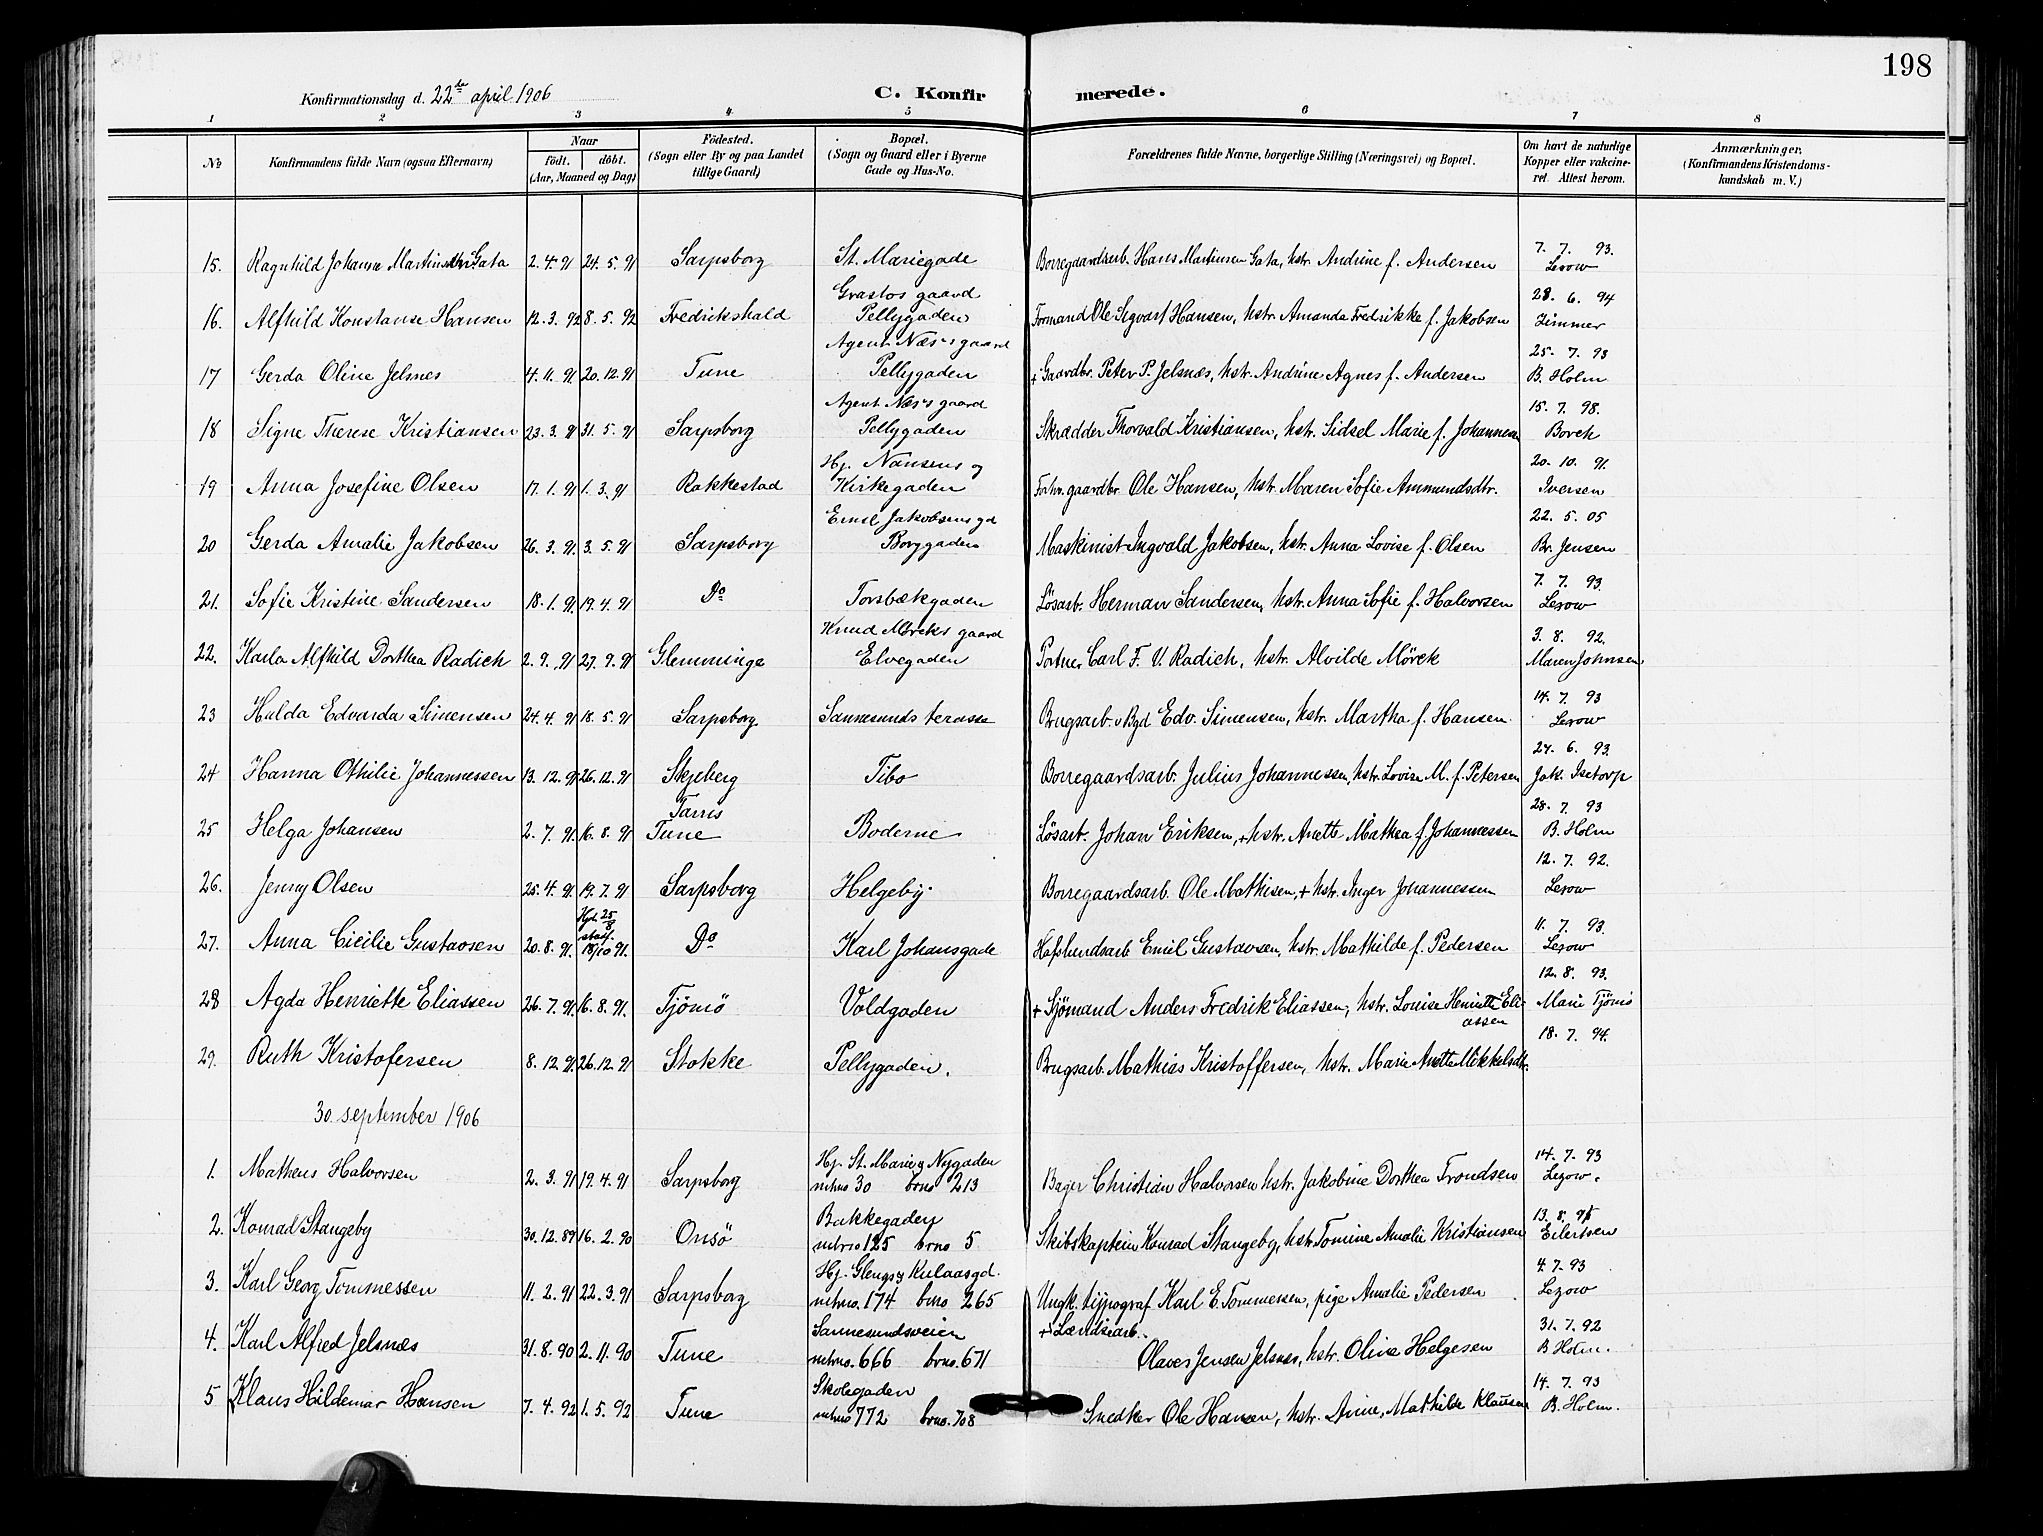 198
Konfirmationsdag d. 22de april 1906 C. Konfir merede.
1 2 3 4 5 6 7 8
No Konfirmandens fulde Navn (ogsaa Efternavn) Naar født. døbt. (Aar, Maaned og Dag) Fødested. (Sogn eller By og paa Landet tillige Gaard) Bopæl. (Sogn og Gaard eller i Byerne Gade og Hus-No. Forældrenes fulde Navne, borgerlige Stilling (Næringsvei) og Bopæl. Om havt de naturlige Kopper eller vakcineret. Attest herom. Anmærkninger, (Konfirmandens Kristendomskundskab m. V.)
15. Ragnhild Johanne Martinsen Gata 2. 4. 91 24. 5. 91 Sarpsborg St. Mariegade Borregaardsarb. Hans Martinsen Gata, hstr. Andrine f. Andersen 7. 7. 93. Lexow
16. Alfhild Konstanse Hansen 12. 3. 92 8. 5. 92 Fredrikshald Grastos gaard Pellygaden Formand Ole Sigvart Hansen, hstr. Amanda Fredrikke f. Jakobsen 28. 6. 94 Zimmer
17 Gerda Oline Jelsnes 4. 11. 91. 20. 12. 91 Tune Agent Næs's gaard Pellygaden + Gaardbr. Peter P. Jelsnæs, hstr. Andrine Agnes f. Andersen 25. 7. 93 B. Holm
18 Signe Therese Kristiansen 23. 3. 91 31. 5. 91 Sarpsborg Agent Næs's gaard Pellygaden Skrædder Thorvald Kristiansen, hstr. Sidsel Marie f. Johannesen 15. 7. 98. Borch
19 Anna Josefine Olsen 17. 1. 91 1. 3. 91 Rakkestad Hj. Nansens og Kirkegaden Forhv. gaardbr. Ole Hansen, hstr. Maren Sofie Ammundsdtr. 20. 10. 91. Iversen
20 Gerda Amalie Jakobsen 26. 3. 91. 3. 5. 91 Sarpsborg Emil Jakobsens gd Borggaden Maskinist Ingvald Jakobsen, hstr. Anna Lovise f. Olsen 22. 5. 05 Br. Jensen
21. Sofie Kristine Sandersen 18. 1. 91. 19. 4. 91 Do Torsbækgaden Løsarb. Herman Sandersen, hstr. Anna Sofie f. Halvorsen 7. 7. 93. Lexow
22. Karla Alfhild Dorthea Radich 2. 9. 91 27. 9. 91 Glemminge Knud Mørcks gaard Elvegaden Portner Carl F. V. Radich, hstr. Alvilde Mörck 3. 8. 92. Maren Johnsen
23 Hulda Edvarda Simensen 24. 4. 91 18. 5. 91 Sarpsborg Sannesunds terasse Brugsarb. v Bgd Edv. Simensen, hstr. Martha f. Hansen. 14. 7. 93 Lexow
24 Hanna Othilie Johannessen 13. 12. 91 26. 12. 91 Skjeberg Tibo Borregaardsarb. Julius Johannessen, hstr. Lovise M. f. Petersen 24. 6. 93. Jak. Isetorp
25 Helga Johansen 2. 7. 91. 16. 8. 91 Tarris Tune Boderne Løsarb. Johan Eriksen, + hstr. Anette Mathea f. Johannessen 28. 7. 93 B. Holm
26. Jenny Olsen 25. 4. 91. 19. 7. 91 Sarpsborg Helgeby. Borregaardsarb. Ole Mathisen, + hstr. Inger Johannessen 12. 7. 92. Lexow
27. Anna Cicilie Gustavsen 20. 8. 91. Hjd. 25/8 stadf. 18/10 91. Do Karl Johansgade Hafslundsarb Emil Gustavsen, hstr. Mathilde f. Pedersen 11. 7. 93. Lexow
28 Agda Henriette Eliassen 26. 7. 91 16. 8. 91. Tjömö Voldgaden + Sjömand Anders Fredrik Eliassen, hstr. Louise Henriette Eliassen 12. 8. 93. Marie Tjömö
29. Ruth Kristofersen 8. 12. 91. 26. 12. 91 Stokke Pellygaden. Brugsarb. Mathias Kristoffersen, hstr. Marie Anette Mikkelsdtr. 18. 7. 94.
30 september 1906
1. Matheus Halvorsen 2. 3. 91 19. 4. 91 Sarpsborg Hj. St. Marie og Nygaden mtrno 30 brno 213 Bager Christian Halvorsen hstr. Jakobine Dorthea Trondsen 14. 7. 93 Lexow.
2. Konrad Stangeby 30. 12. 89 16. 2. 90 Onsö Bakkegaden mtrno 125 brno 5 Skibskaptein Konrad Stangeby, hstr. Tomine Amalie Kristiansen 13. 8. 95 Eilertsen
3. Karl Georg Tommessen 11. 2. 91 22. 3. 91 Sarpsborg Hj. Glengs og Kulaasgd. mtrno. 174 brno 265 Ungk. typograf Karl E. Tommesen, pige Amalie Pedersen 4. 7. 93 Lexow
4. Karl Alfred Jelsnæs 31. 8. 90 2. 11. 90 Tune Sannesundsveien mtrno. 666 brno. 671 + Lændsearb. Olaves Jensen Jelsnæs, hstr. Oline Helgesen 31. 7. 92 B Holm.
5 Klaus Hildemar Hansen 7. 4. 92 1. 5. 92 Tune Skolegaden mtrno 772 brno. 708 Snedker Ole Hansen, hstr. Anne Mathilde Klausen 14. 7. 93 B. Holm.